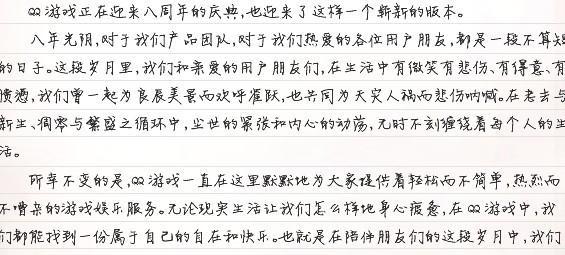 QQ游戏正在迎来八周年的庆典,也迎来了这样一个崭新的版本。
八年光阴,对于我们产品团队,对于我们热爱的各位用户朋友,都是一段不算短
的日子。这段岁月里,我们和亲爱的用户朋友们,在生活中有微笑有悲伤、有得意、有
愤懑,我们曾一起为良辰美景而欢呼雀跃,也共同为天灾人祸而悲伤呐喊。在老去与
新生、凋零与繁盛之循环中,尘世的紧张和内心的动荡,无时不刻缠绕着每个人的生
活。
所幸不变的是,QQ游戏一直在这里默默地为大家提供着轻松而不简单,热烈而
不嘈杂的游戏娱乐服务。无论现实生活让我们怎么样地身心疲惫,在QQ游戏中,我
们都能找到一份属于自己的自在和快乐。也就是在陪伴朋友们的这段岁月中,我们